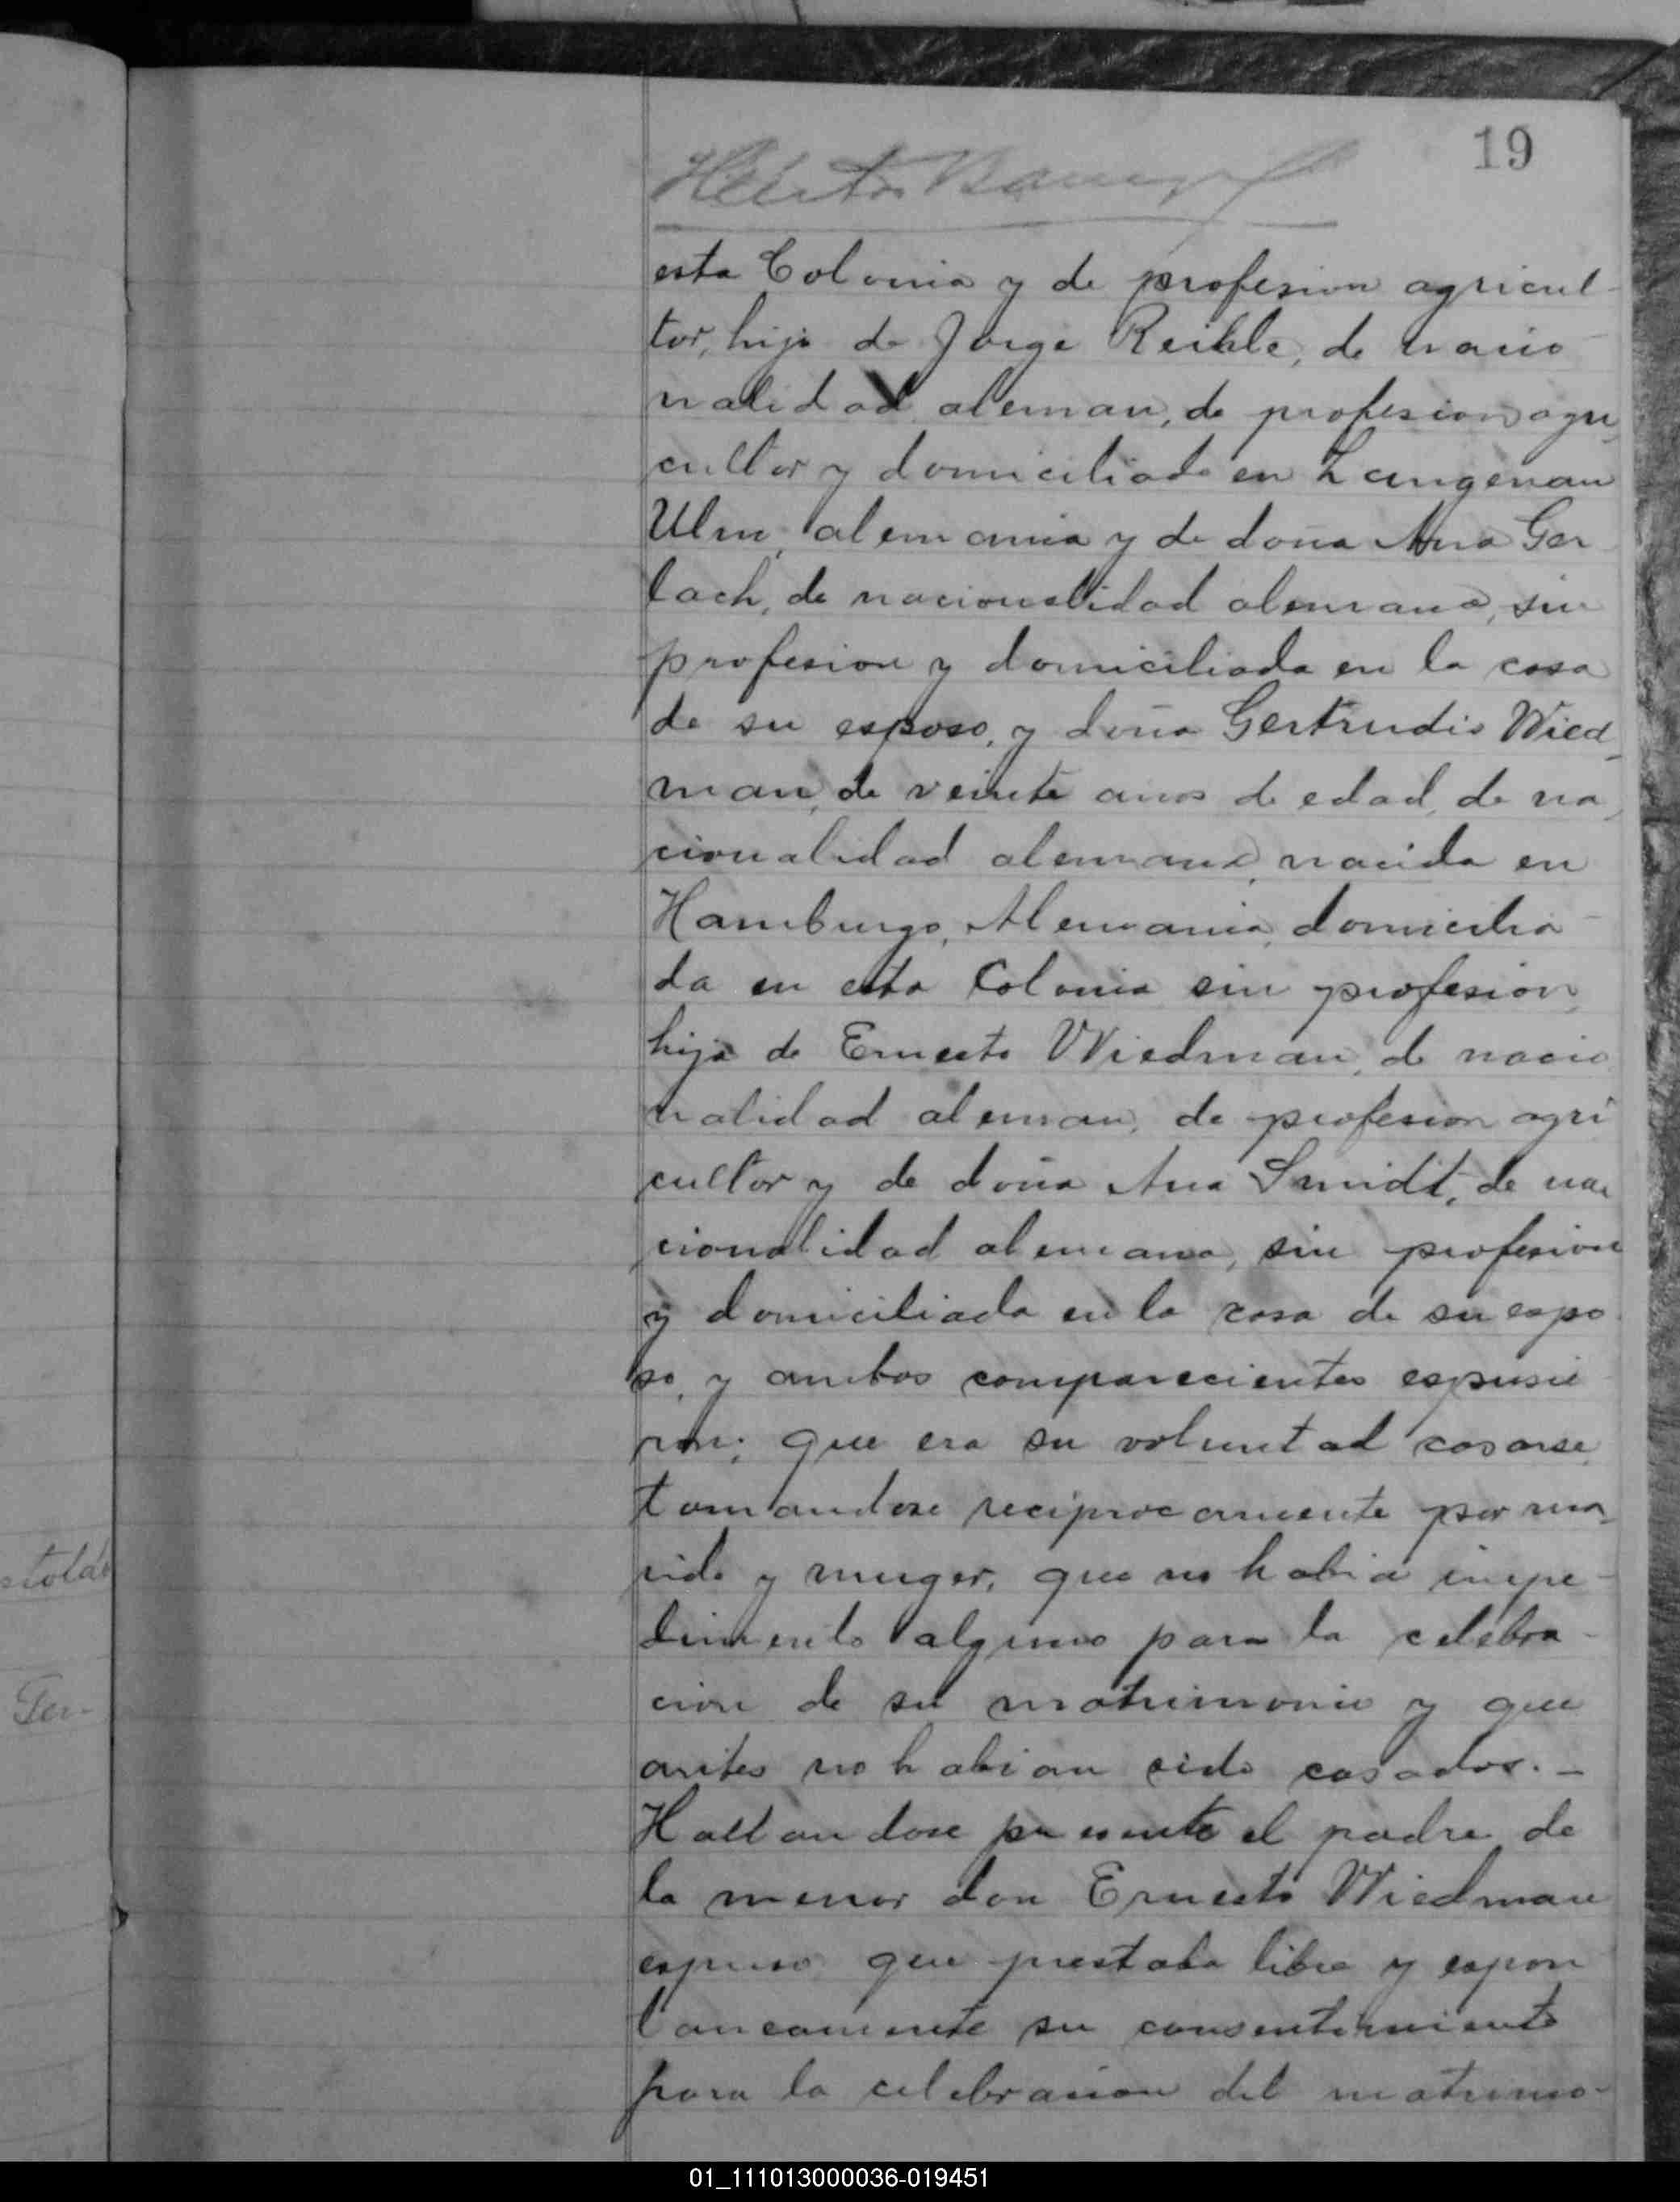 19
esta Colonia y de profesion agricul-
tor, hijo de Jorge Reihle, de nacio-
nalidad aleman, de profesion agri
cultor y domiciliado en Langenau
Ulm, alemania y de doña Ana Ger
lach, de nacionalidad alemana, sin
profesion y domiciliada en la casa
de su esposo, y doña Gertrudis Wied
man, de veinte años de edad, de na
cionalidad alemana, nacida en
Hamburgo, Alemania, domicilia-
da en esta Colonia sin profesion,
hija de Ernesto Wiedman, de nacio
nalidad aleman, de profesion agri
cultor y de doña Ana Smidt, de na
cionalidad alemana, sin profesion
y domiciliada en la casa de su espo
so, y ambos comparecientes espusie
ron; que era su voluntad casarse
tomandose reciprocamente por ma
rido y muger, que no habia impe-
dimento alguno para la celebra-
cion de su matrimonio y que
antes no habian sido casados. -
Hallandose presente el padre de
la menor don Ernesto Wiedman
espuso que prestaba libre y espon
taneamente su consentimiento
para la celebracion del matrimo-
01_111013000036-019451